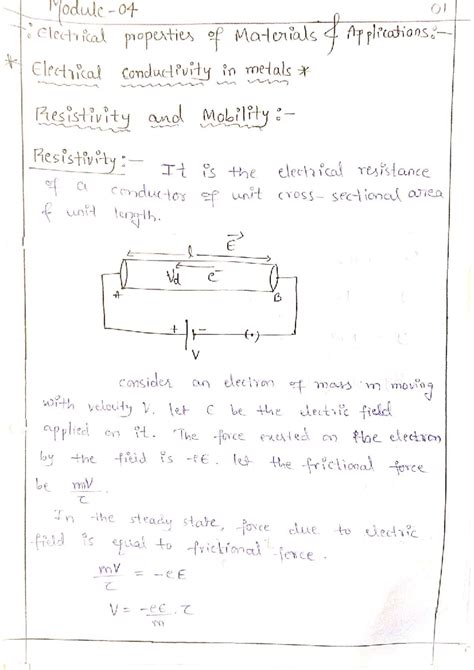 Module-04
01
:Electrical properties of Materials & Applications:-
* Electrical conductivity in metals *
Resistivity and Mobility:-
Resistivity:- It is the electrical resistance
of a conductor of unit cross-sectional area
& unit length.
l
E
Vd e-
A B
+ -
(.)
V
consider an electron of mass m moving
with velocity V. let E be the electric field
applied on it. The force exerted on the electron
by the field is -eE. let the frictional force
be mV/τ.
In the steady state, force due to electric
field is equal to frictional force.
mV/τ = -eE
V = -eE/m . τ